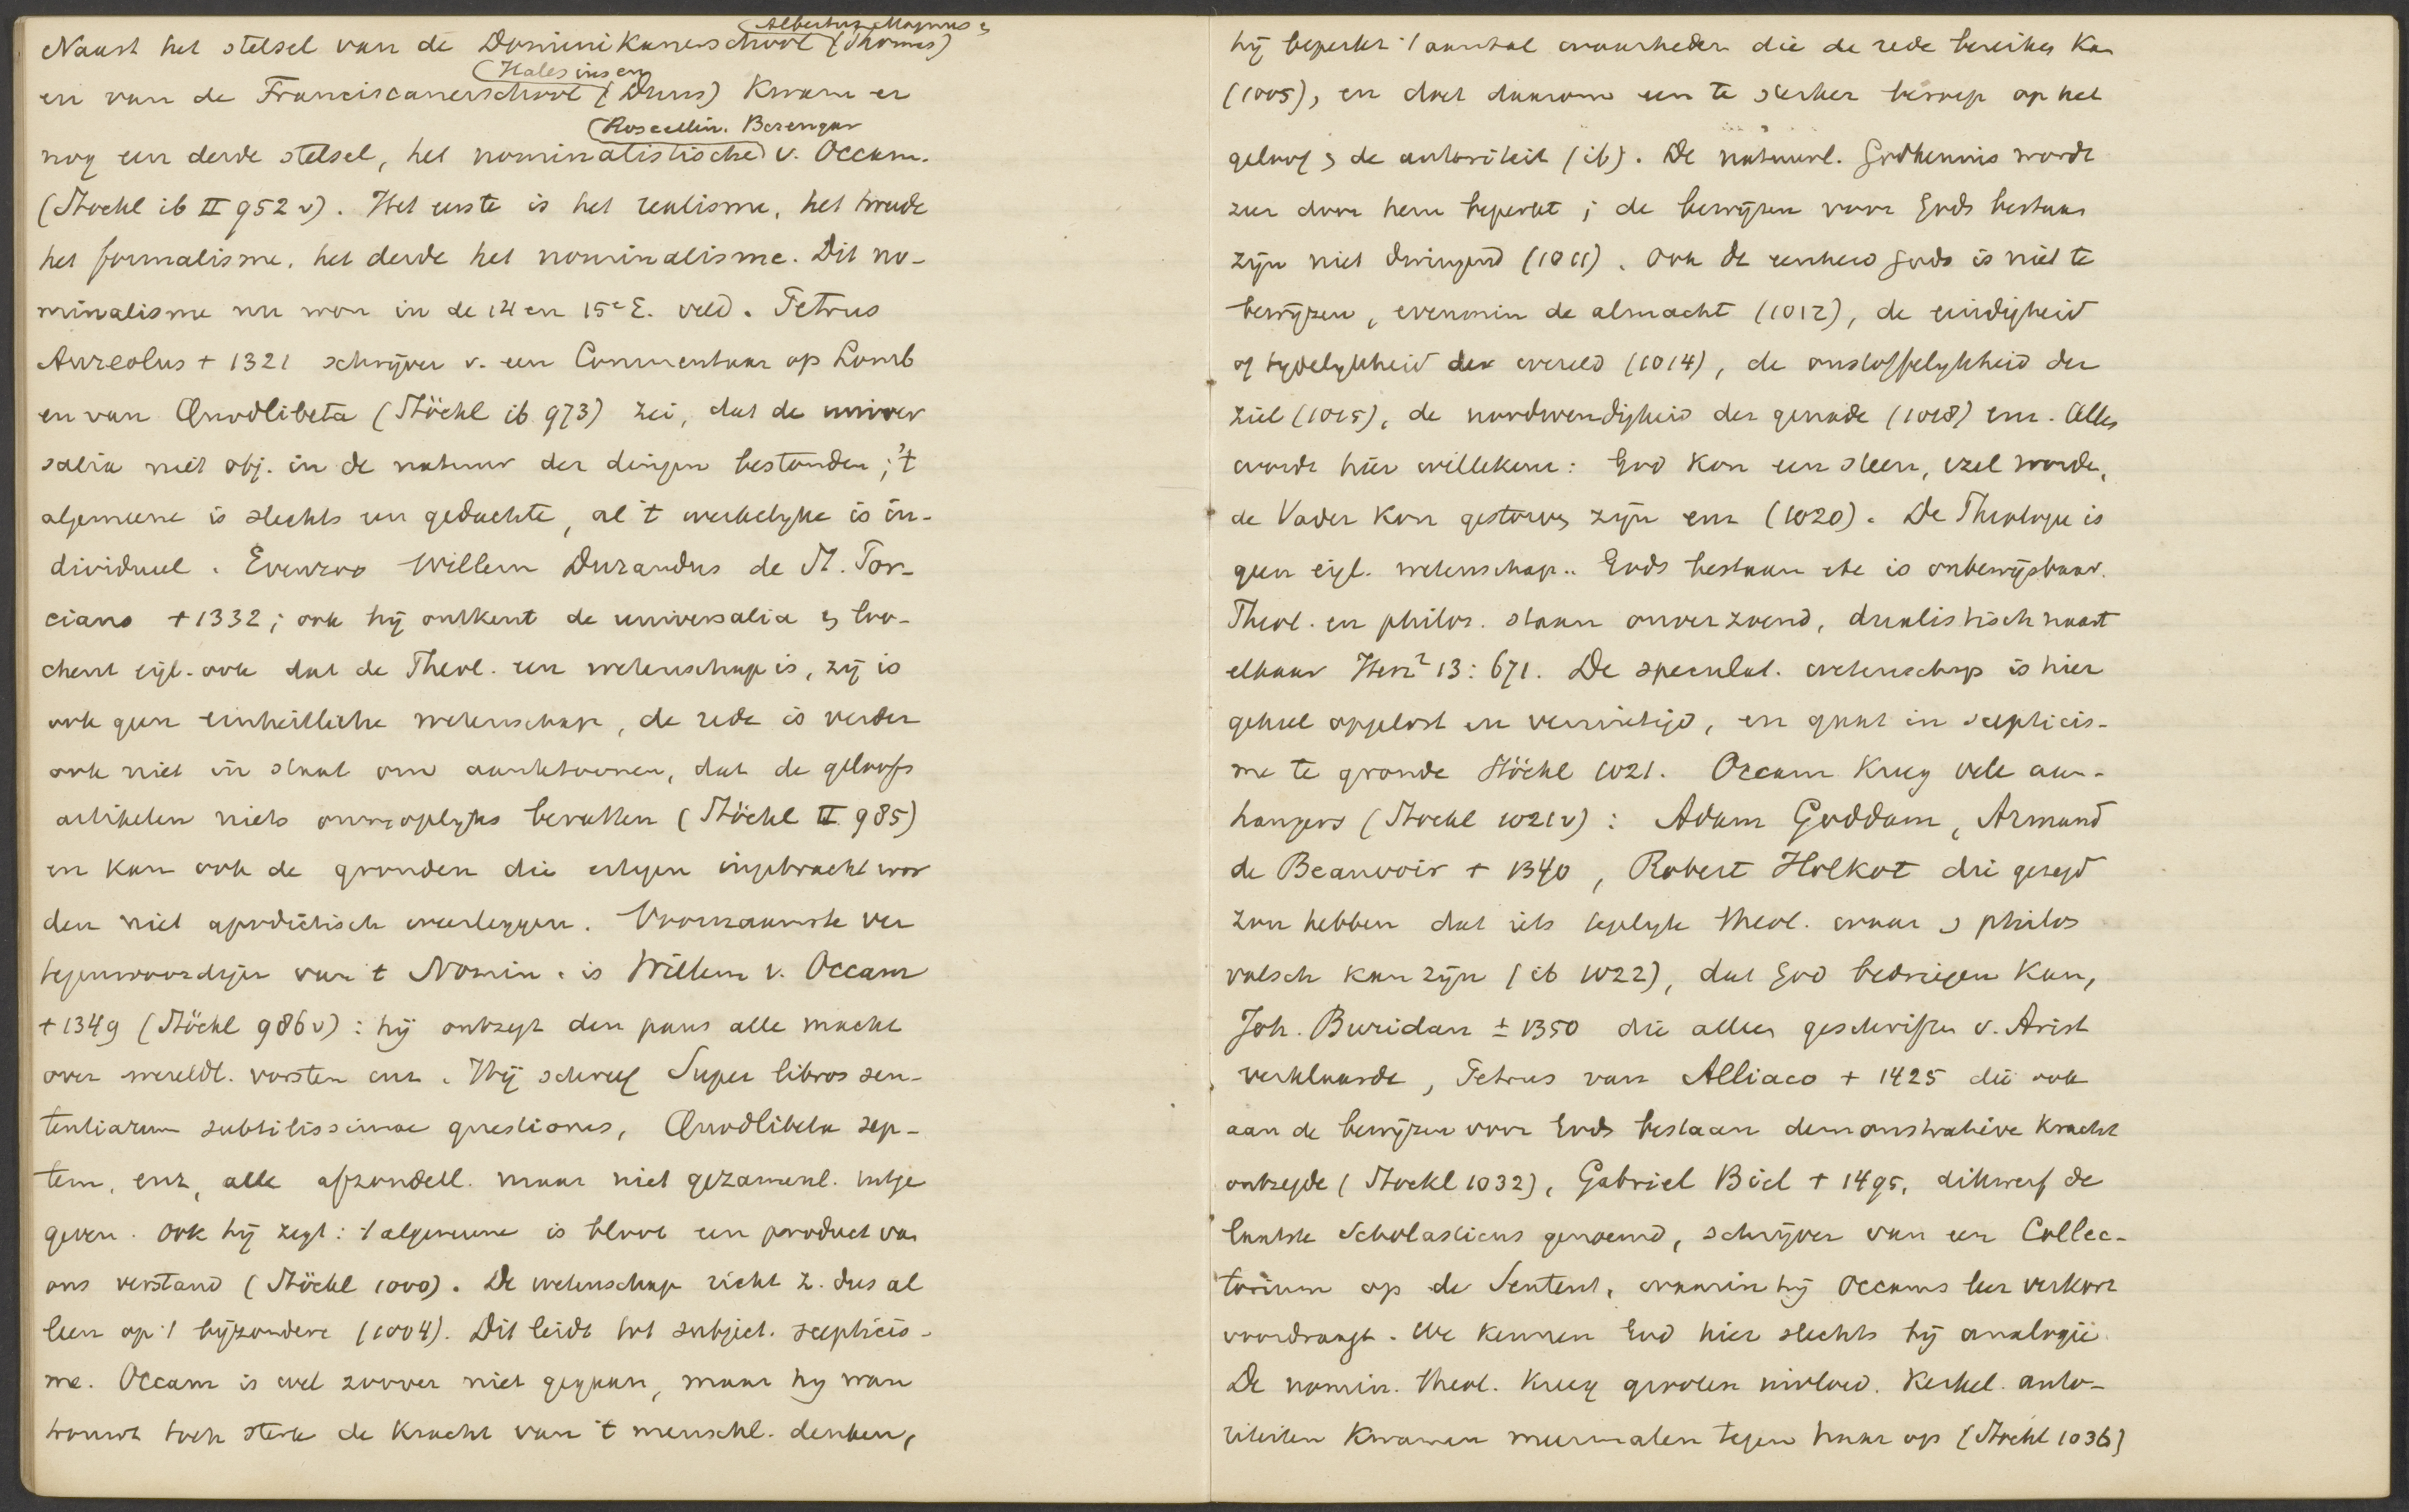 Albertus Magnus &
Naast het stelsel van de Dominikanerschool (Thomas)
(Halesius en
en van de Franciscanerschool (Duns) kwam er
(Roscellin. Berengar
nog een derde stelsel, het nominalistische) v. Occam.
(Stockl ib II 952 v). Het eerste is het realisme, het tweede
het formalisme, het derde het nominalisme. Dit no-
minalisme nu won in de 14 en 15e E. veld. Petrus
Aureolus + 1321 schrijver v. een Commentaar op Lomb
en van Quodlibeta (Stöckl ib 973) zei, dat de univer
salia niet obj. in de natuur der dingen bestonden; 't
algemeene is slechts een gedachte, al 't werkelyke is in-
dividueel. Evenzoo Willem Durandus de St. Por-
ciano +1332; ook hij ontkent de universalia & loo-
chent eigl. ook dat de Theol. een wetenschap is, zij is
ook geen einheitliche wetenschap, de rede is verder
ook niet in staat om aantetoonen, dat de geloofs
artikelen niets onmogelyks bevatten (Stöckl II 985)
en kan ook de gronden die ertegen ingebracht wor
den niet apodictisch weerleggen. Voornaamste ver
tegenwoordiger van 't Nomin. is Willem v. Occam
+ 1349 (Stöckl 986 v): hij ontzegt den paus alle macht
over wereldl. vorsten enz. Hij schreef Super libros sen-
tentiarum subtilissimae questiones, Quodlibeta sep-
tem, enz, alle afzonderl. maar niet gezamenl. uitge
geven. Ook hij zegt: 't algemeene is bloot een product van
ons verstand (Stöckl 1000). De wetenschap richt z. dus al
leen op 't bijzondere (1004). Dit leidt tot subject. scepticis-
me. Occam is wel zoover niet gegaan, maar hy wan
trouwt toch sterk de kracht van 't menschl. denken,
hij beperkt 't aantal waarheden die de rede bereiken kan
(1005), en doet daarom een te sterker beroep op het
geloof & de autoriteit (ib). De natuurl. Godkennis wordt
zeer door hem beperkt; de bewijzen voor Gods bestaan
zijn niet dwingend (1011). Ook de eenheid Gods is niet te
bewijzen, evenmin de almacht (1012), de eindigheid
of tydelykheid der wereld (1014), de onstoffelykheid der
ziel (1015), de noodwendigheid der genade (1018) enz. Alles
wordt hier willekeur: God kon een steen, ezel worden,
de Vader kon gestorven zijn enz (1020). De Theologie is
geen eigl. wetenschap.. Gods bestaan zlf is onbewijsbaar.
Theol. en philos. staan onverzoend, dualistisch naast
elkaar Herz² 13: 671. De speculat. wetenschap is hier
geheel opgelost en vernietigd, en gaat in scepticis-
me te gronde Stöckl 1021. Occam kreeg vele aan-
hangers (Stockl 1021 v): Adam Goddam, Armand
de Beauvoir + 1340, Robert Holkot die gezegd
zou hebben dat iets tegelyk theol. waar & philos
valsch kan zijn (ib 1022), dat God bedriegen kan,
Joh. Buridan ± 1350 die allen geschriften v. Arist
verklaarde, Petrus van Alliaco + 1425 die ook
aan de bewijzen voor Gods bestaan demonstratieve kracht
ontzegde (Stockl 1032), Gabriel Biel + 1495, dikwerf de
laatste Scholasticus genoemd, schrijver van een Collec-
torium op de Sentent, waarin hij Occams leer verkort
voordraagt. We kennen God hier slechts bij analogie.
De nomin. theol. kreeg grooten invloed. Kerkel. auto-
riteiten kwamen meermalen tegen haar op (Stöckl 1036)